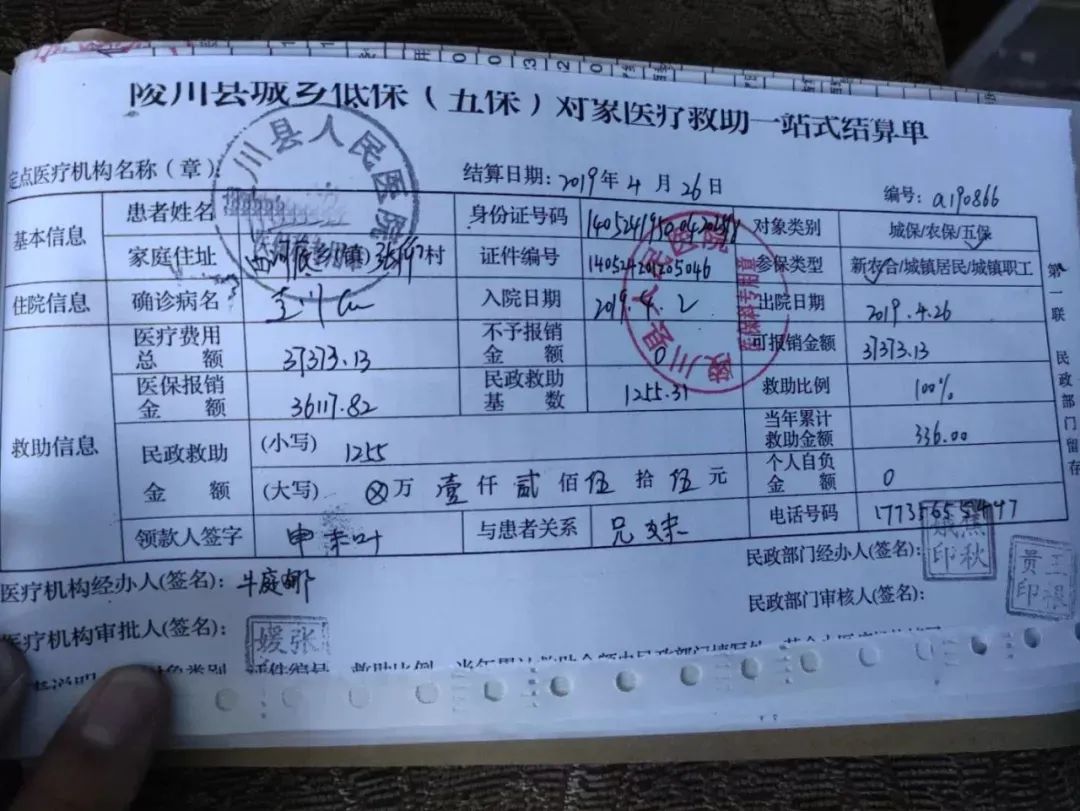 陵川县城乡低保（五保）对象医疗救助一站式结算单
定点医疗机构名称（章）： 结算日期：2019年4月26日 编号：a190866
基本信息 患者姓名 身份证号码 对象类别 城保/农保/五保
家庭住址 乡(镇) 村 证件编号 140524201205046 参保类型 新农合/城镇居民/城镇职工
住院信息 确诊病名 入院日期 2019.4.2 出院日期 2019.4.26
救助信息 医疗费用总额 37373.13 不予报销金额 0 可报销金额 37373.13
医保报销金额 36117.82 民政救助基数 1255.31 救助比例 100%
民政救助金额 (小写) 1255 当年累计救助金额 336.00
(大写) ⊗万 壹仟 贰佰 伍拾 伍元 个人自负金额 0
领款人签字 与患者关系 兄妹 电话号码
第一联 民政部门留存
医疗机构经办人(签名)：牛庭娜 民政部门经办人(签名)：
医疗机构审批人(签名)： 民政部门审核人(签名)：
陵川县人民医院
医保科专用章
媛张